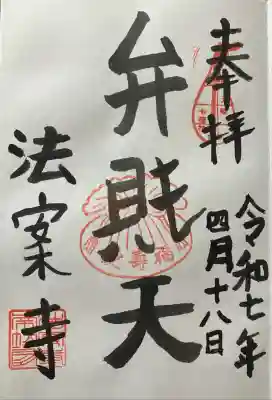 奉拝
令和七年
四月十八日
弁財天
法案寺